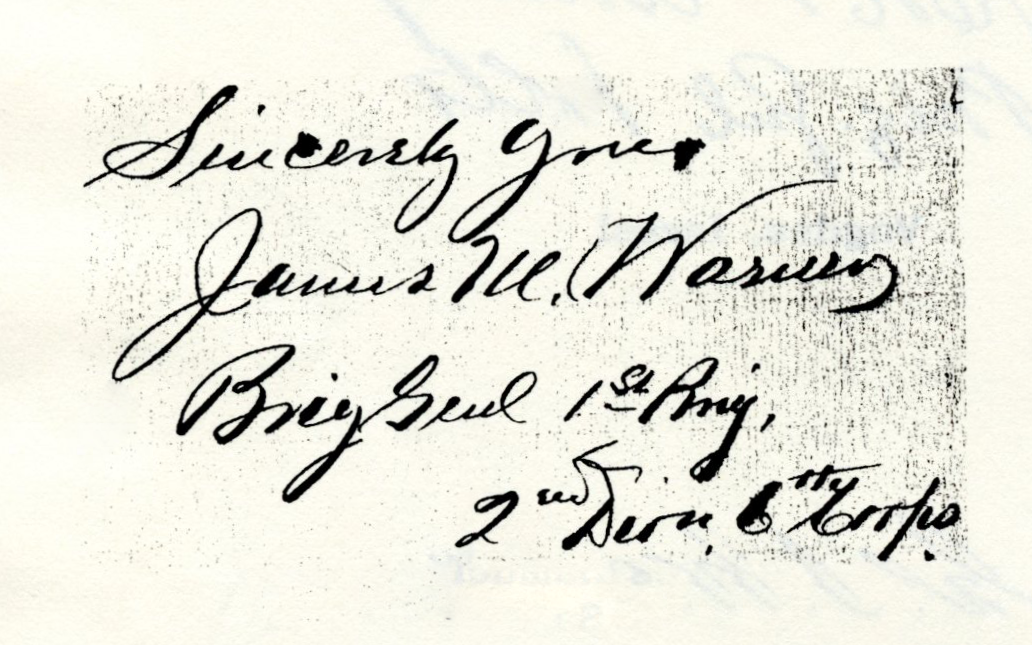 Sincerely Yours
James M. Warner
Brig Genl 1st Brig,
2nd Divn, 6th Corps